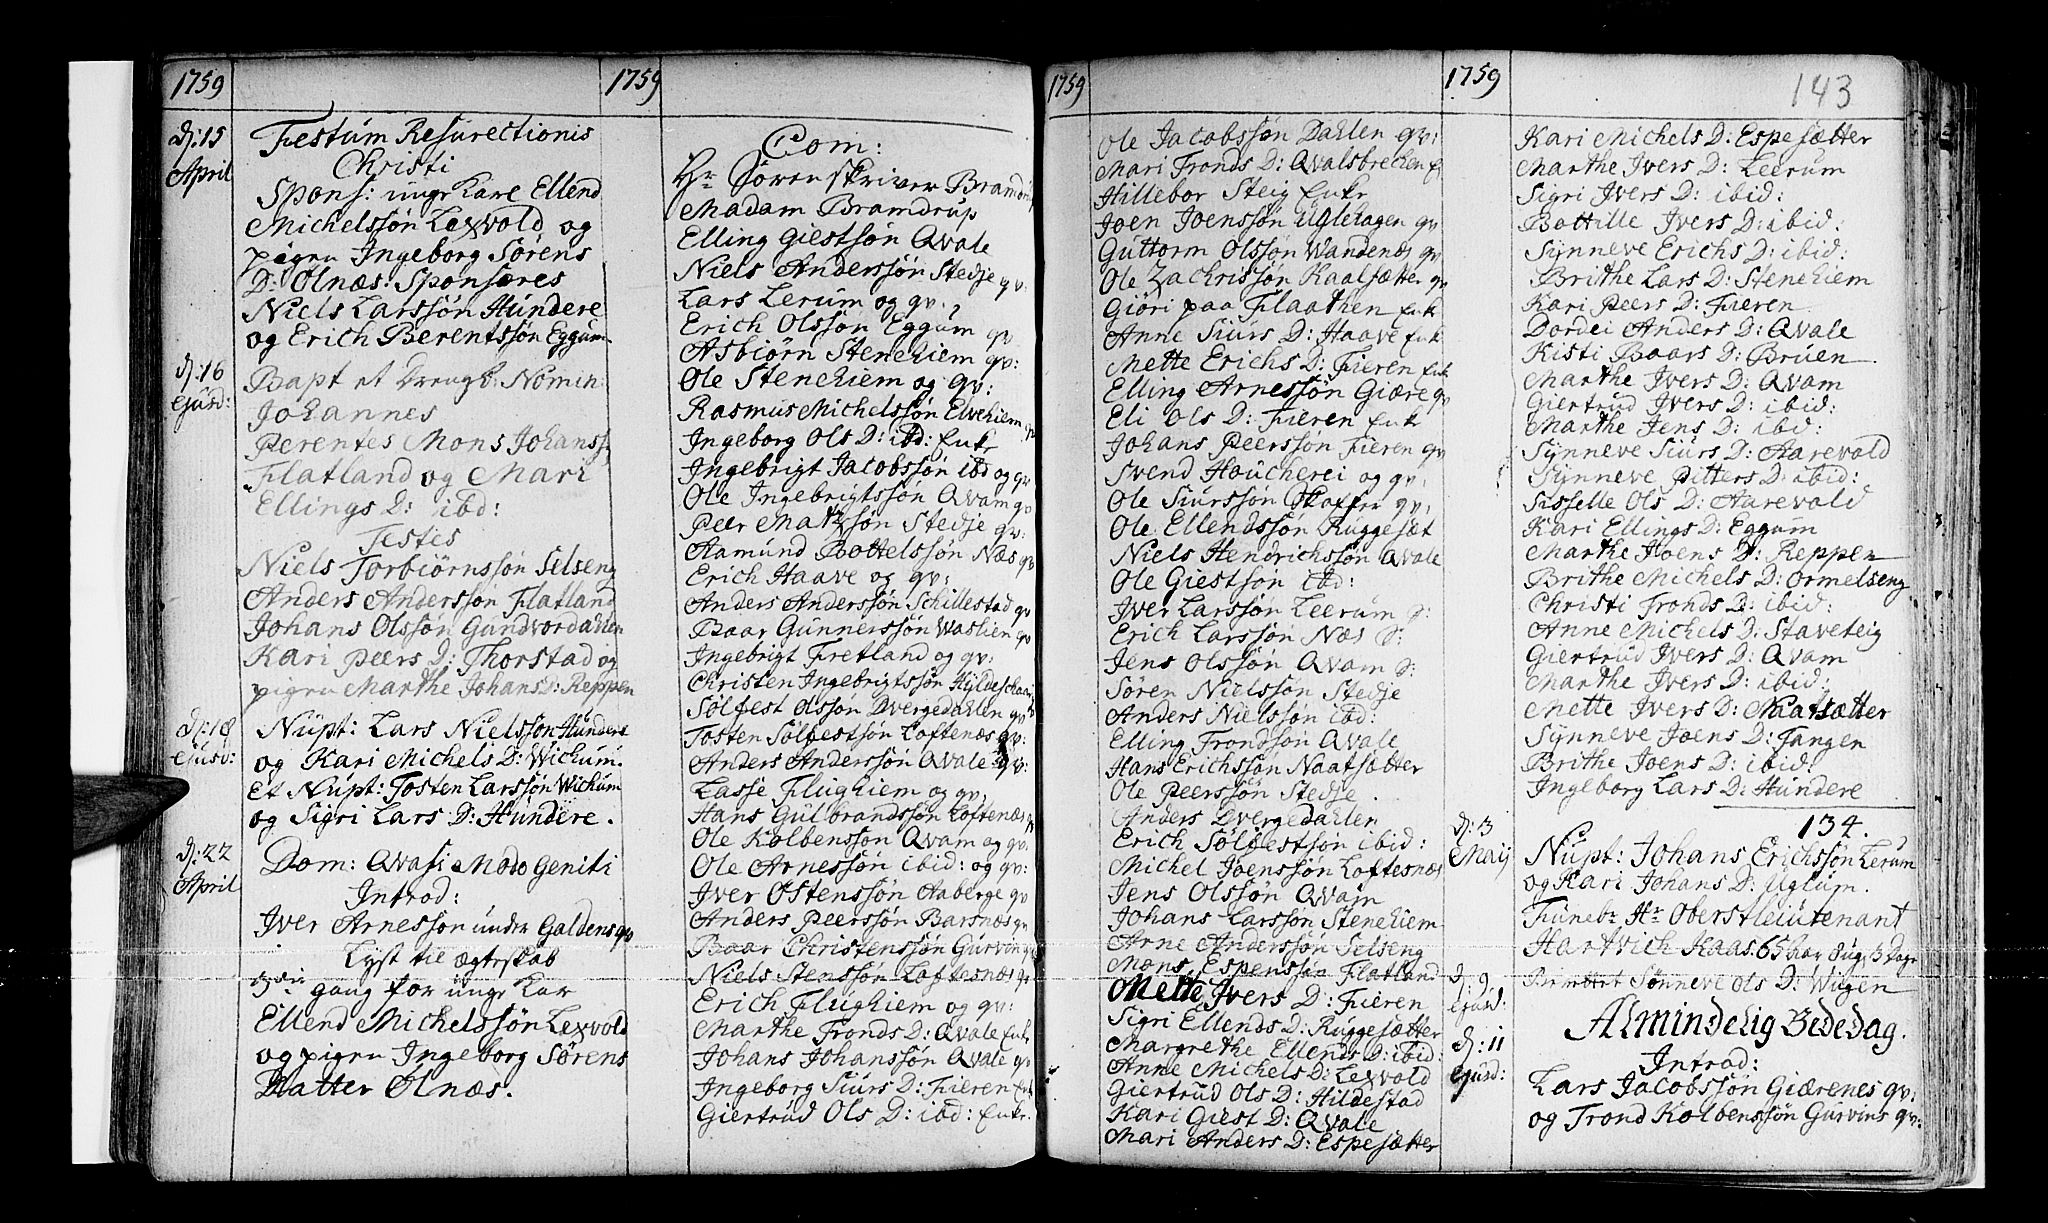 1759
D: 15
April
Festum Resurectionis
Christi
Spons: unge Karl Ellend
Michelssøn Lexvold og
pigen Ingeborg Sørens
D: Ølnæs: Sponsæres
Niels Larssøn Hundere
og Erich Berentssøn Eggum
D: 16
Ejusd:
Bapt et Drengb: Nomin:
Johannes
Perentes Mons Johanss:
Flatland og Mari
Ellings D: ibd:
Testes
Niels Torbiørnssøn Selseng
Anders Anderssøn Flatland
Johans Olssøn Gundvordahlen
Kari Peers D: Thorstad og
pigen Marthe Johans D: Reppen
D: 18
Ejusd:
Nupt: Lars Nielssøn Hundere
og Kari Michels D: Wichum.
Et Nupt: Tosten Larssøn Wichum
og Sigri Lars D: Hundere.
D: 22
April
Dom: Qvasi Modo Geniti
Introd:
Iver Arnessøn under Galdens qv
Lyst til Ægteskab
gang for unge Kar
Ellend Michelssøn Lexvold
og pigen Ingeborg Sørens
Datter Ølnæs.
1759
Com:
Hr Sørenskriver Bramdrup
Madam Bramdrup
Elling Giestsøn Qvale
Niels Anderssøn Stedje qv:
Lars Lerum og qv:
Erich Olssøn Eggum qv
Asbiørn Stenehiem qv:
Ole Stenehiem og qv:
Rasmus Michelssøn Elvehiem qv
Ingeborg Ols D: ibd: Enk
Ingebrigt Jacobssøn ibd og qv
Ole Ingebrigtssøn Qvam qv
Peer Matzsøn Stedje qv:
Aamund Bottelssøn Næs qv
Erich Haave og qv:
Anders Anderssøn Schillestad qv
Baar Gunnerssøn Waslien qv
Ingebrigt Fretland og qv:
Christen Ingebrigtssøn Hyldeschaar
Sølfest Olsson Dvergedahlen qv
Tosten Sølfestsøn Loftenæs qv:
Anders Anderssøn Qvale qv:
Lasse Flughiem og qv:
Hans Gulbrandssøn Loftenæs qv
Ole Kolbenssøn Qvam og qv:
Ole Arnessøn ibid: og qv:
Iver Ostenssøn Aaberge qv
Anders Peerssøn Barsnæs qv
Baar Christenssøn Gurvin qv
Niels Stenssøn Loftesnæs qv
Erich Flughiem og qv:
Marthe Tronds D: Qvale Enk
Johans Johanssøn Qvale qv
Ingeborg Siurs D: Fieren Enk
Giertrud Ols D: ibd: Enkr.
1759
Ole Jacobssøn Dahlen qv:
Mari Tronds D: Qvalsbrechen E
Hillebor Steig Enkr
Joen Joenssøn Uglehagen qv
Guttorm Olssøn Wandenes qv
Ole Zachrissøn Kaalsætter qv
Giøri paa Flaathen Enk
Anne Siurs D: Haave Enk
Mette Erichs D: Fieren Enk
Elling Arnessøn Giære qv
Eli Ols D: Fieren Enk
Johans Peerssøn Fieren qv
Svend Houcherei og qv:
Ole Siurssøn Skaffer qv:
Ole Ellendssøn Ruggesæt
Niels Hendrichssøn Qvale
Ole Giestsøn ibd:
Iver Larssøn Leerum D:
Erich Larssøn Næs D:
Jens Olssøn Qvam D:
Søren Nielssøn Stedje
Anders Nielssøn ibd:
Elling Trondsøn Qvale
Hans Erichssøn Naatsætter
Ole Peerssøn Stedje
Anders Dvergedahlen
Erich Sølfestsøn ibid:
Michel Joenssøn Loftesnæs
Jens Olssøn Qvam
Johans Larssøn Stenehiem
Arne Anderssøn Selseng
Mons Espenssøn Flatland
Mette Ivers D: Fieren
Sigri Ellends D: Ruggesætter
Margrethe Ellends D: ibid:
Anne Michels D: Lexvold
Giertrud Ols D: Hildestad
Kari Giest D: Qvale
Mari Anders D: Espesætter
1759
143
Kari Michels D: Espesætter
Marthe Ivers D: Leerum
Sigri Ivers D: ibid:
Bottille Ivers D: ibid:
Synneve Erichs D: ibid:
Brithe Lars D: Stenehiem
Kari Peers D: Fieren
Dordei Anders D: Qvale
Kisti Baars D: Bruen
Marthe Ivers D: Qvam
Giertrud Ivers D: ibid:
Marthe Jens D: ibd:
Synneve Siurs D: Aarevold
Synneve Pitters D: ibid:
Sisselle Ols D: Aarevold
Kari Ellings D: Eggum
Marthe Joens D: Reppen
Brithe Michels D: Ormelseng
Christi Tronds D: ibid:
Anne Michels D: Staveteig
Giertrud Ivers D: Qvam
Marthe Ivers D: ibid:
Mette Ivers D: Naatsætter
Synneve Joens D: Tangen
Brithe Joens D: ibid:
Ingeborg Lars D: Hundere
134.
D: 3
Maij
Nupt: Johans Erichssøn Lerum
og Kari Johans D: Uglum.
Funebr Hr Oberstleiutenant
Hartvich Kaas. 65 aar 8 ug 3 Dage
D: 9
Ejusd:
Synneve Ols D: Wiigen
D: 11
Ejusd:
Almindelig Bededag.
Introd:
Lars Jacobssøn Giærenes qv:
og Trond Kolbenssøn Gurvins qv: